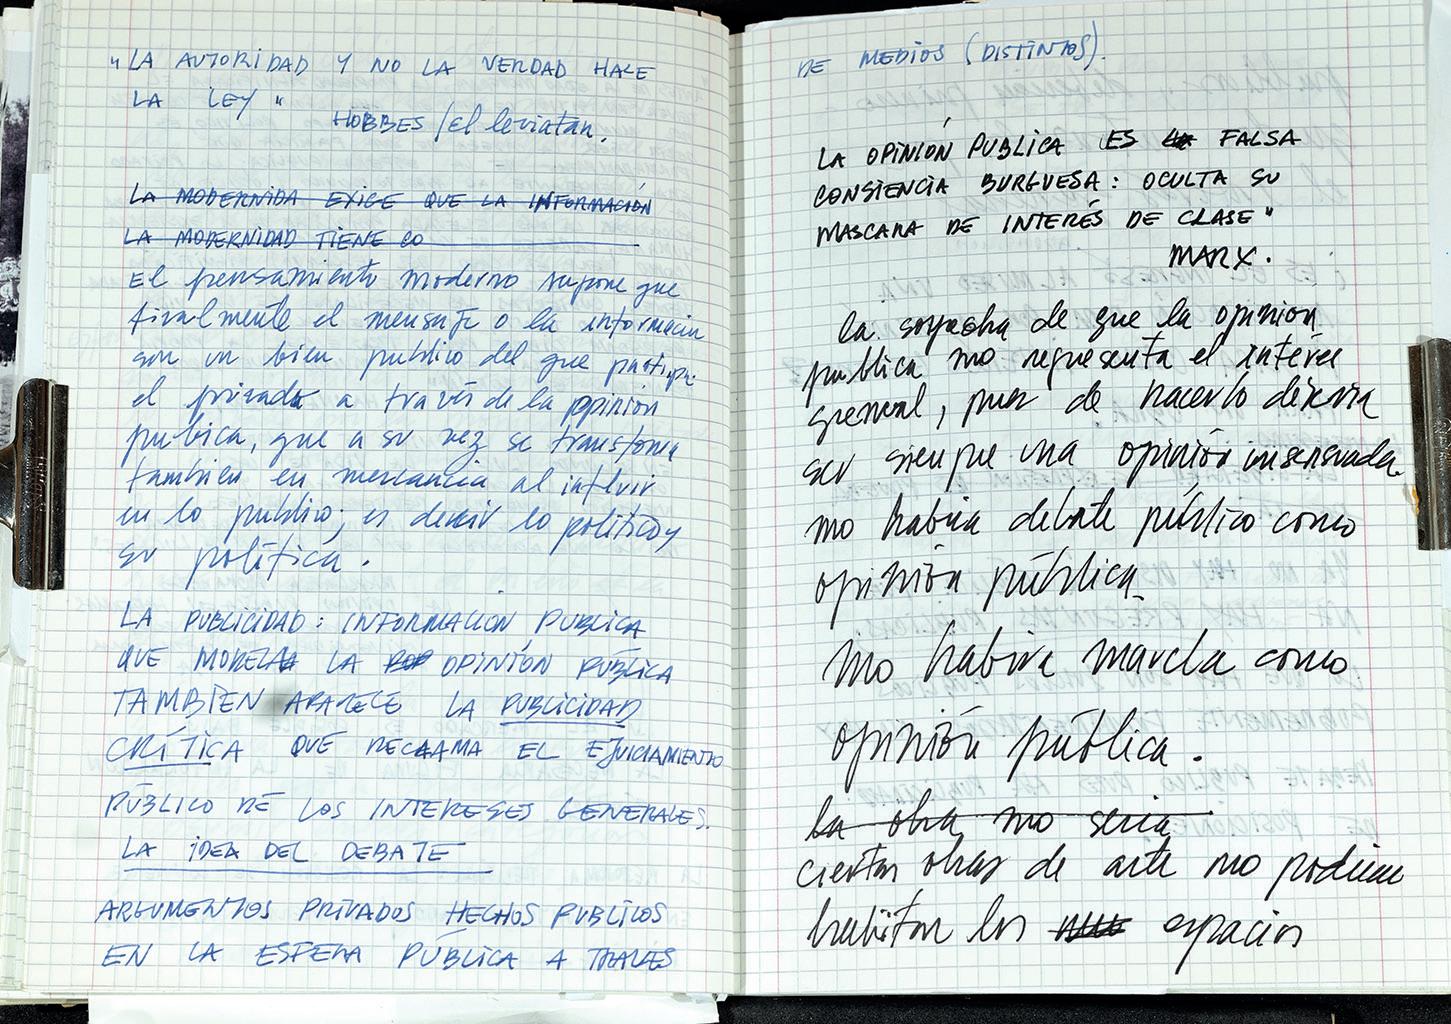 "LA AUTORIDAD Y NO LA VERDAD HACE
LA LEY"
HOBBES / El leviatan.
LA MODERNIDA EXIGE QUE LA INFORMACIÓN
LA MODERNIDAD TIENE CO
El pensamiento moderno supone que
finalmente el mensaje o la informacin
son un bien publico del que participa
el privado a través de la opinión
publica, que a su vez se transforma
tambien en mercancia al influir
en lo publico; es decir lo politico y
su política.
LA PUBLICIDAD: INFORMACIÓN PUBLICA
QUE MODELA LA POP OPINIÓN PÚBLICA
TAMBIEN APARECE LA PUBLICIDAD
CRÍTICA QUE RECLAMA EL EJUICIAMIENTO
PÚBLICO DE LOS INTERESES GENERALES.
LA IDEA DEL DEBATE
ARGUMENTOS PRIVADOS HECHOS PUBLICOS
EN LA ESFERA PÚBLICA A TRAVES
DE MEDIOS (DISTINTOS).
LA OPINIÓN PUBLICA ES LA FALSA
CONSIENCIA BURGUESA: OCULTA SU
MASCARA DE INTERÉS DE CLASE"
MARX.
la sospecha de que la opinion
publica no representa el interés
general, pues de hacerlo deberia
ser siempre una opinión
no habria debate público como
opinión pública.
No habria mancha como
opinión pública.
La obra no seria
ciertas obras de arte no podrian
habitar los espacios